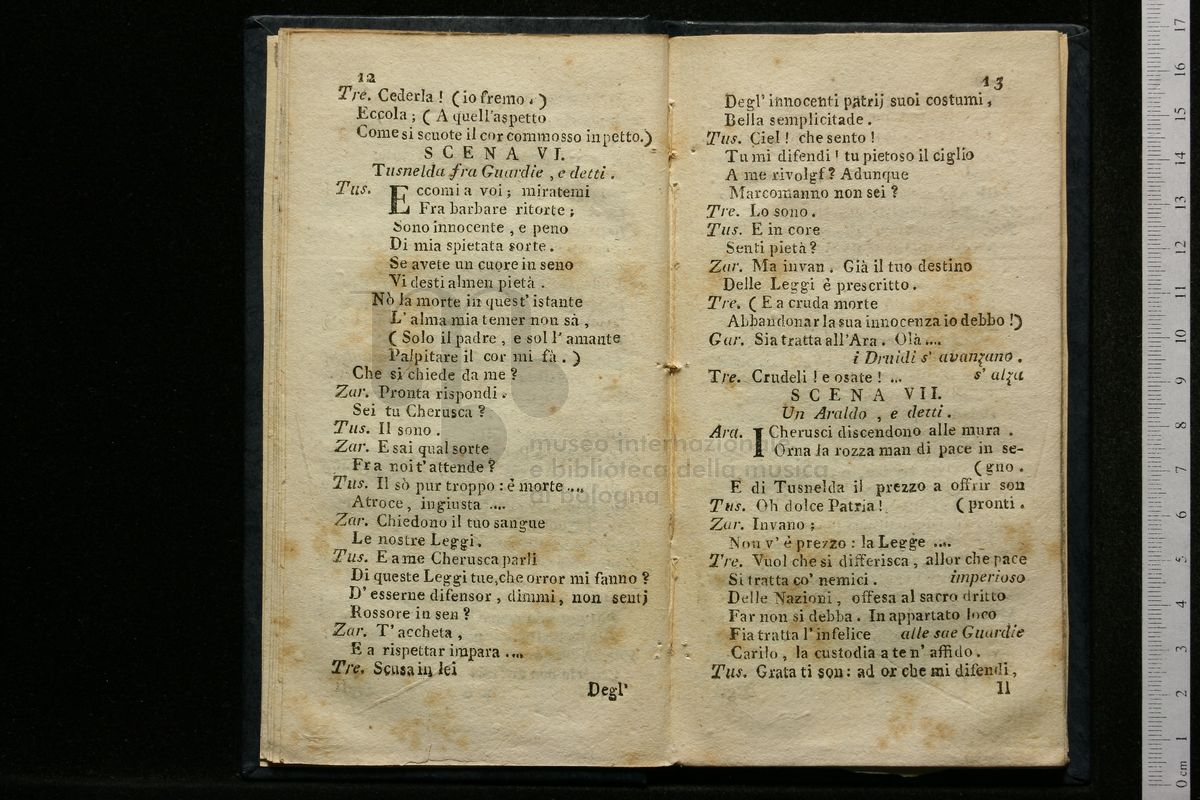 12
Tre. Cederla ! (io fremo . )
Eccola ; ( A quell'aspetto
Come si scuote il cor commosso in petto.)
SCENA VI.
Tusnelda fra Guardie , e detti .
Tus. Eccomi a voi ; miratemi
Fra barbare ritorte ;
Sono innocente , e peno
Di mia spietata sorte .
Se avete un cuore in seno
Vi desti almen pietà .
Nò la morte in quest' istante
L' alma mia temer non sà ,
( Solo il padre , e sol l' amante
Palpitare il cor mi fà . )
Che si chiede da me ?
Zar. Pronta rispondi .
Sei tu Cherusca ?
Tus. Il sono .
Zar. E sai qual sorte
Fra noi t' attende ?
Tus. Il sò pur troppo : è morte ....
Atroce , ingiusta ....
Zar. Chiedono il tuo sangue
Le nostre Leggi .
Tus. E a me Cherusca parli
Di queste Leggi tue, che orror mi fanno ?
D' esserne difensor , dimmi , non sentj
Rossore in sen ?
Zar. T' accheta ,
E a rispettar impara ....
Tre. Scusa in lei
Degl'
13
Degl' innocenti patrij suoi costumi ,
Bella semplicitade .
Tus. Ciel ! che sento !
Tu mi difendi ! tu pietoso il ciglio
A me rivolgf ? Adunque
Marcomanno non sei ?
Tre. Lo sono .
Tus. E in core
Senti pietà ?
Zar. Ma invan . Già il tuo destino
Delle Leggi è prescritto .
Tre. ( E a cruda morte
Abbandonar la sua innocenza io debbo !)
Gar. Sia tratta all'Ara . Olà ....
i Druidi s' avanzano .
Tre. Crudeli ! e osate ! ... s' alza
SCENA VII.
Un Araldo , e detti .
Ara. I Cherusci discendono alle mura .
Orna la rozza man di pace in se-
(gno .
E di Tusnelda il prezzo a offrir son
Tus. Oh dolce Patria ! (pronti .
Zar. Invano ;
Non v' è prezzo : la Legge ....
Tre. Vuol che si differisca , allor che pace
Si tratta co' nemici . imperioso
Delle Nazioni , offesa al sacro dritto
Far non si debba . In appartato loco
Fia tratta l' infelice alle sue Guardie
Carilo , la custodia a te n' affido .
Tus. Grata ti son : ad or che mi difendi ,
Il
museo internazionale
e biblioteca della musica
di bologna
0 cm 1 2 3 4 5 6 7 8 9 10 11 12 13 14 15 16 17